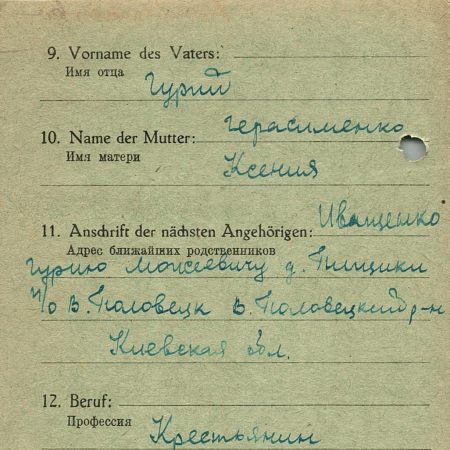 9. Vorname des Vaters:
Имя отца
Гурий
10. Name der Mutter: Герасименко
Имя матери
Ксения
11. Anschrift der nächsten Angehörigen: Иващенко
Адрес ближайших родственников
Гурию Моисеевичу д. Пищики
п/о В. Половецк В. Половецкий р-н
Киевская обл.
12. Beruf:
Профессия
Крестьянин